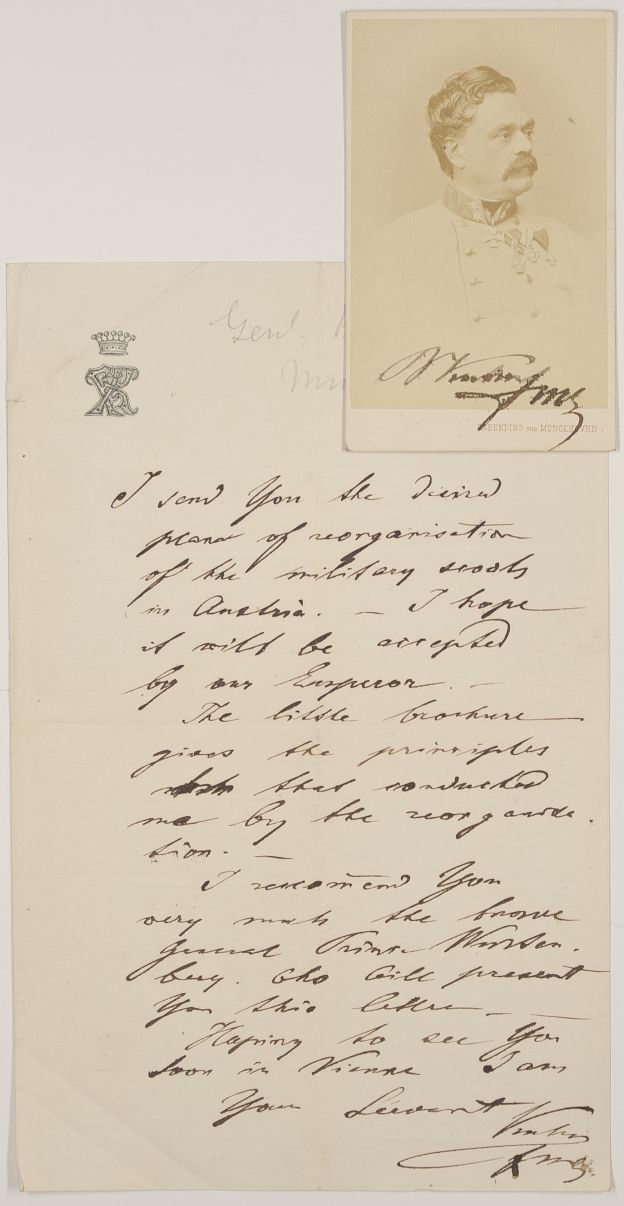 Genl.
fmz
RABENDING UND MONCKHOVEN.
I send You the desired
plans of reorganisation
of the military scools
in Austria. — I hope
it will be accepted
by our Emperor. —
The little brochure
gives the principles
that conducted
me by the reorganisa-
tion. —
I recommend You
very much the brave
General Prince Würtem-
berg. who will present
You this lettre. —
Hoping to see You
soon in Vienna I am
Your Servant
fmz